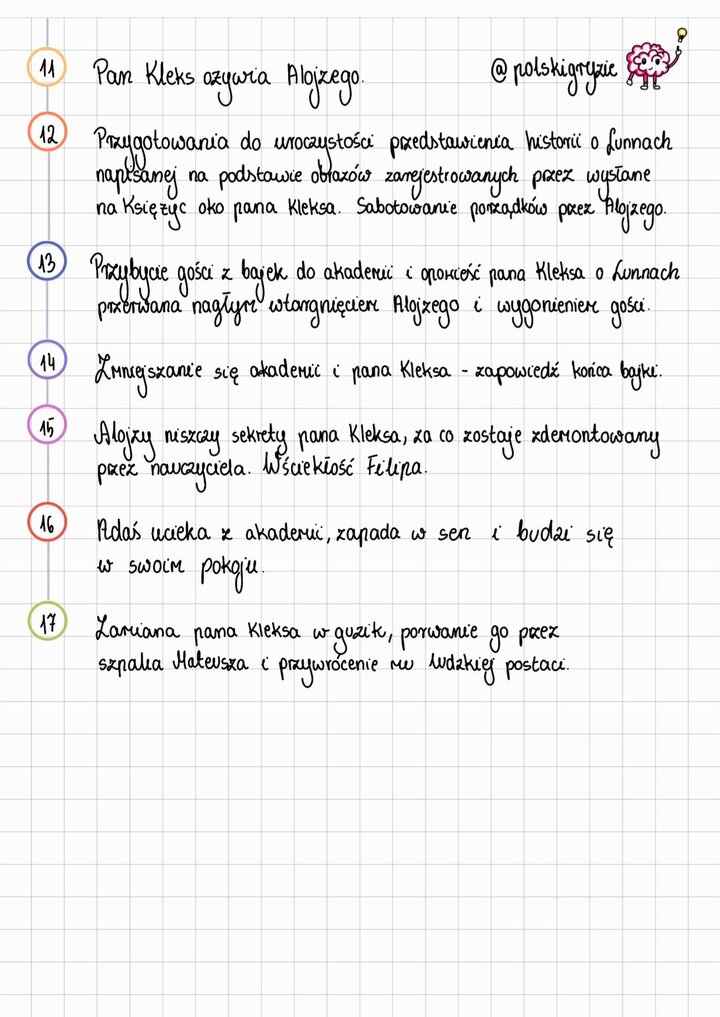 11 Pan Kleks ożywia Alojzego.
@polskigryzie
12 Przygotowania do uroczystości przedstawienia historii o Lunnach
napisanej na podstawie obrazów zarejestrowanych przez wysłane
na Księżyc oko pana Kleksa. Sabotowanie porządków przez Alojzego.
13 Przybycie gości z bajek do akademii i opowieść pana Kleksa o Lunnach
przerwana nagłym wtargnięciem Alojzego i wygonieniem gości.
14 Zmniejszanie się akademii i pana Kleksa - zapowiedź końca bajki.
15 Alojzy niszczy sekrety pana Kleksa, za co zostaje zdemontowany
przez nauczyciela. Wściekłość Filipa.
16 Adaś ucieka z akademii, zapada w sen i budzi się
w swoim pokoju.
17 Zamiana pana Kleksa w guzik, porwanie go przez
szpaka Mateusza i przywrócenie mu ludzkiej postaci.